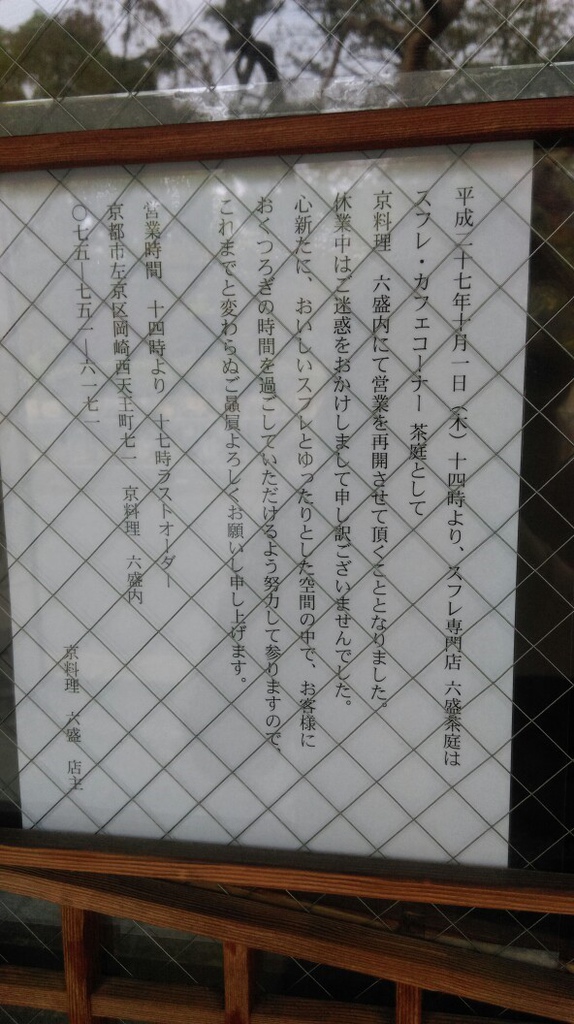 平成二十七年十月一日（木）十四時より、スフレ専門店 六盛茶庭は
スフレ・カフェコーナー 茶庭として
京料理 六盛内にて営業を再開させて頂くこととなりました。
休業中はご迷惑をおかけしまして申し訳ございませんでした。
心新たに、おいしいスフレとゆったりとした空間の中で、お客様に
おくつろぎの時間を過ごしていただけるよう努力して参りますので、
これまでと変わらぬご贔屓よろしくお願いし申し上げます。
営業時間 十四時より 十七時ラストオーダー
京都市左京区岡崎西天王町七一 京料理 六盛内
〇七五―七五一―六一七一
京料理 六盛 店主